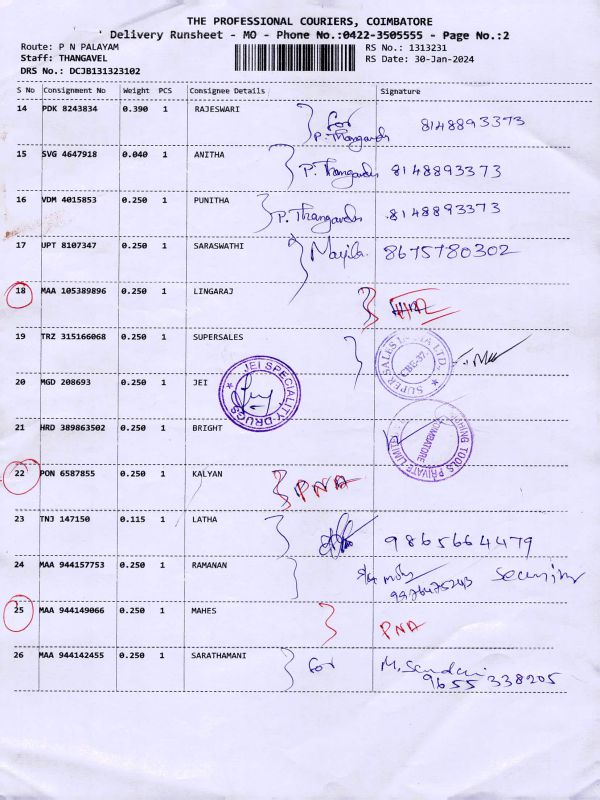 THE PROFESSIONAL COURIERS, COIMBATORE
Delivery Runsheet - MO - Phone No.:0422-3505555 - Page No.:2
Route: P N PALAYAM RS No.: 1313231
Staff: THANGAVEL RS Date: 30-Jan-2024
DRS No.: DCJB131323102
S No Consignment No Weight PCS Consignee Details Signature
14 PDK 8243834 0.390 1 RAJESWARI for 8148893373
15 SVG 4647918 0.040 1 ANITHA 8148893373
16 VDM 4015853 0.250 1 PUNITHA 8148893373
17 UPT 8107347 0.250 1 SARASWATHI 8675780302
18 MAA 105389896 0.250 1 LINGARAJ
19 TRZ 315166068 0.250 1 SUPERSALES SUPER SALES LTD. CBE-37.
20 MGD 208693 0.250 1 JEI JEI SPECIALITY DRUGS
21 HRD 389863502 0.250 1 BRIGHT TOOLS PRIVATE LIMITED COIMBATORE
22 PON 6587855 0.250 1 KALYAN PNA
23 TNJ 147150 0.115 1 LATHA 9865664479
24 MAA 944157753 0.250 1 RAMANAN
25 MAA 944149066 0.250 1 MAHES PNA
26 MAA 944142455 0.250 1 SARATHAMANI for
9655 338205